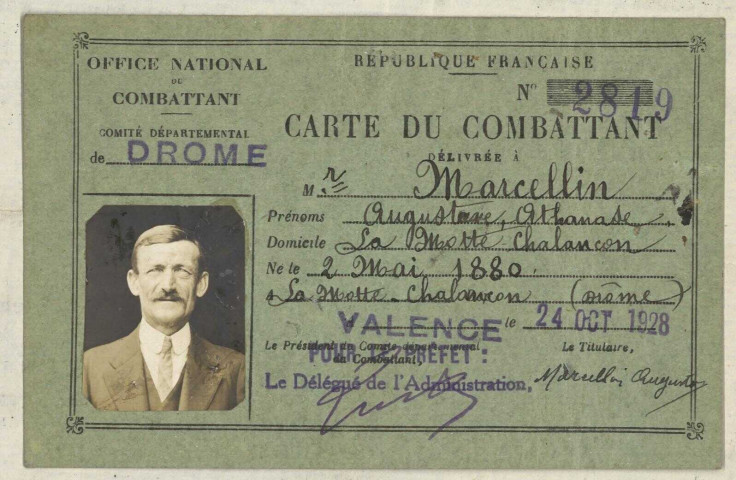 OFFICE NATIONAL
DU
COMBATTANT
COMITÉ DÉPARTEMENTAL
de DROME
RÉPUBLIQUE FRANÇAISE
N° 2819
CARTE DU COMBATTANT
DÉLIVRÉE À
M r Marcellin
Prénoms Augustave, Athanase
Domicile La Motte Chalancon
Né le 2 Mai 1880
à La Motte-Chalancon (Drôme)
VALENCE le 24 OCT 1928
Le Président du Comité départemental
du Combattant,
POUR LE PREFET :
Le Titulaire,
Le Délégué de l'Administration,
Marcellin Auguste